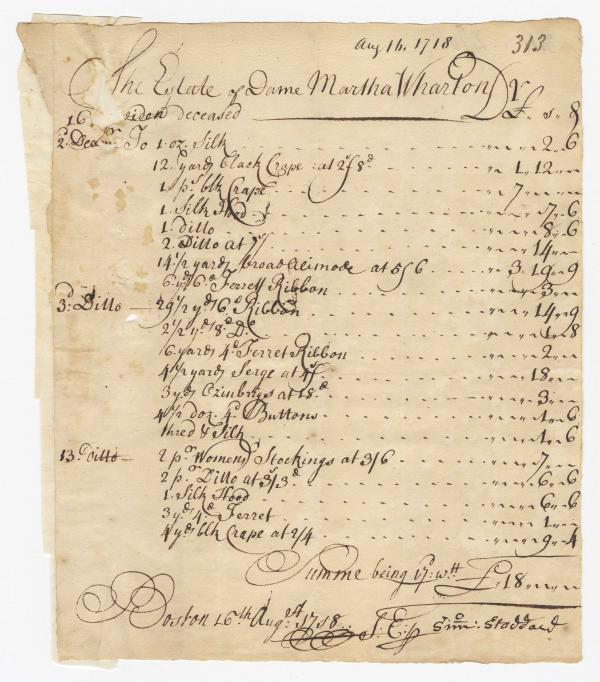 Aug 16. 1718 313
The Estate of Dame Martha Wharton Dr
16 deceased £ s 8
2d: Decr To 1 oz. Silk 2 6
12 yards black Crape at 2/8d 1 12
1 ps blk Crape 7
1 Silk Hood 7 6
1 ditto 8 6
2 Ditto at 7/ 14
14 1/2 yards broad Alimode at 5/6 3 19 9
6 yds 6d Ferrett Ribbon 3
3d: Ditto 29 1/2 yds 6d Ribbon 14 9
2 1/2 yds 8d Do 1 8
6 yards 4d Ferret Ribbon 2
4 1/2 yards Serge at 4/ 18
3 yds Ozinbrigs at 18d 3
4 1/2 doz. 4d Buttons 1 6
thred & Silk 1 6
13. ditto 2 pr Womens Stockings at 3/6 7
2 pr Ditto at 3/3d 6 6
1 Silk Hood 6 6
3 yds 4d Ferret 1
4 yds blk Crape at 2/4 9 4
Summe being 17: wtt £ 18
Boston 16th Augst 1718. Simn: Stoddard